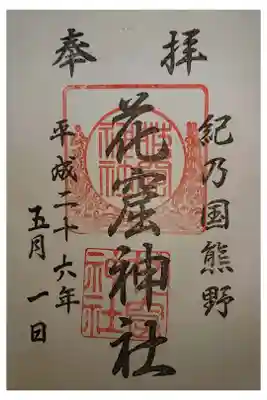 奉拝
紀乃国熊野
花窟神社
平成二十六年
五月一日